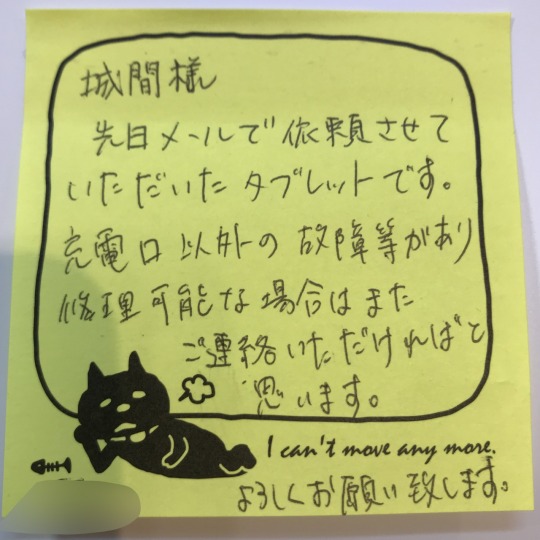 城間様
先日メールで依頼させて
いただいたタブレットです。
充電口以外の故障等があり
修理可能な場合はまた
ご連絡いただければと
思います。
I can't move any more.
よろしくお願い致します。